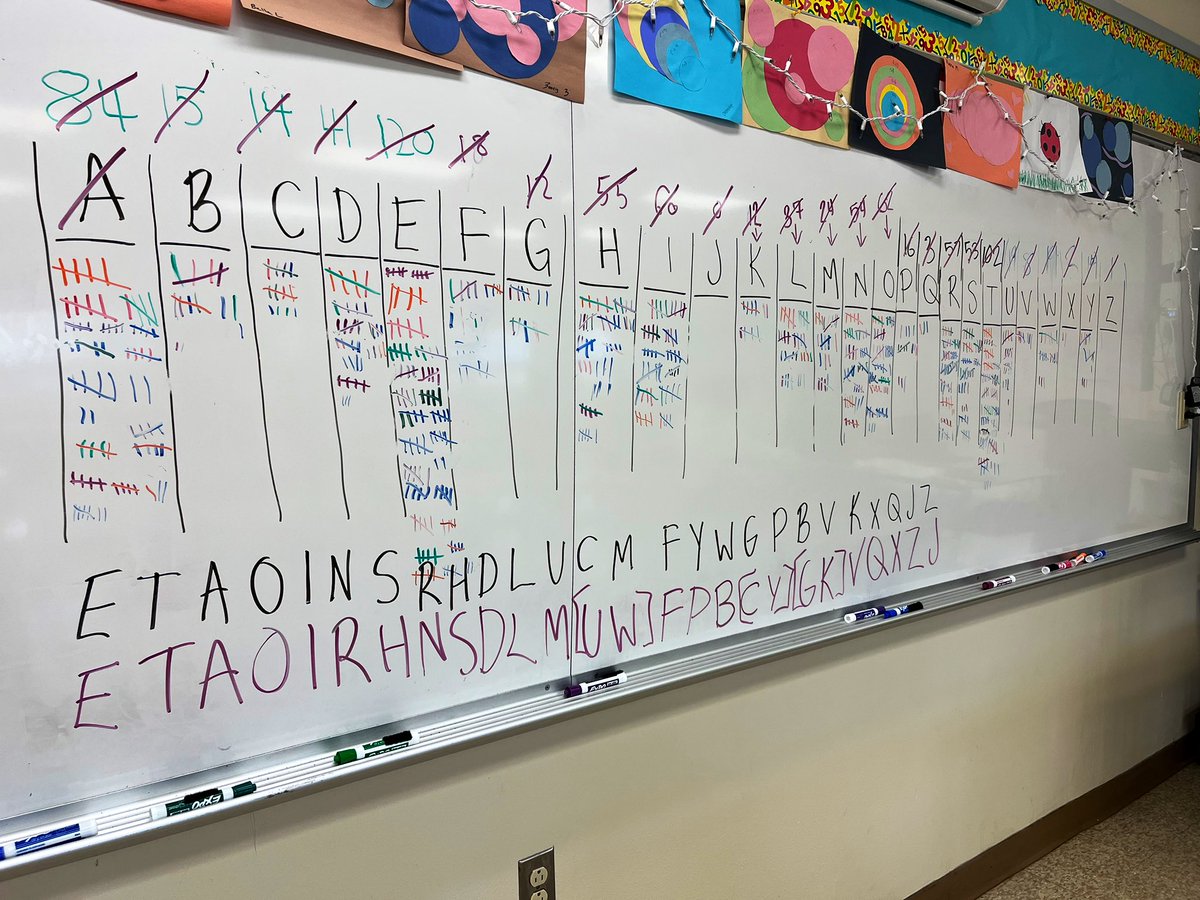 84 15 14 41 120 18 12 55 60 0 12 37 24 54 62 16 3 57 53 102
A B C D E F G H I J K L M N O P Q R S T U V W X Y Z
E T A O I N S R H D L U C M F Y W G P B V K X Q J Z
E T A O I R H N S D L M [U W] F P B [C Y] [G K] V Q X Z J
EXPO